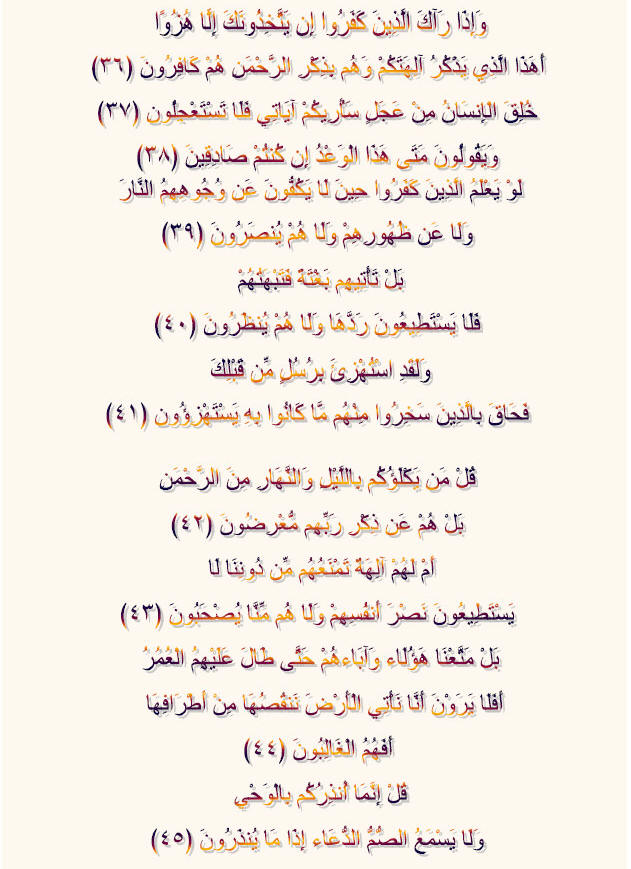 وَإِذَا رَآكَ الَّذِينَ كَفَرُوا إِن يَتَّخِذُونَكَ إِلَّا هُزُوًا
أَهَذَا الَّذِي يَذْكُرُ آلِهَتَكُمْ وَهُم بِذِكْرِ الرَّحْمَنِ هُمْ كَافِرُونَ (٣٦)
خُلِقَ الإِنسَانُ مِنْ عَجَلٍ سَأُرِيكُمْ آيَاتِي فَلَا تَسْتَعْجِلُونِ (٣٧)
وَيَقُولُونَ مَتَى هَذَا الْوَعْدُ إِن كُنتُمْ صَادِقِينَ (٣٨)
لَوْ يَعْلَمُ الَّذِينَ كَفَرُوا حِينَ لَا يَكُفُّونَ عَن وُجُوهِهِمُ النَّارَ
وَلَا عَن ظُهُورِهِمْ وَلَا هُمْ يُنصَرُونَ (٣٩)
بَلْ تَأْتِيهِم بَغْتَةً فَتَبْهَتُهُمْ
فَلَا يَسْتَطِيعُونَ رَدَّهَا وَلَا هُمْ يُنظَرُونَ (٤٠)
وَلَقَدِ اسْتُهْزِئَ بِرُسُلٍ مِّن قَبْلِكَ
فَحَاقَ بِالَّذِينَ سَخِرُوا مِنْهُم مَّا كَانُوا بِهِ يَسْتَهْزِؤُون (٤١)
قُلْ مَن يَكْلَؤُكُم بِاللَّيْلِ وَالنَّهَارِ مِنَ الرَّحْمَنِ
بَلْ هُمْ عَن ذِكْرِ رَبِّهِم مُّعْرِضُونَ (٤٢)
أَمْ لَهُمْ آلِهَةٌ تَمْنَعُهُم مِّن دُونِنَا لَا
يَسْتَطِيعُونَ نَصْرَ أَنفُسِهِمْ وَلَا هُم مِّنَّا يُصْحَبُونَ (٤٣)
بَلْ مَتَّعْنَا هَؤُلَاء وَآبَاءهُمْ حَتَّى طَالَ عَلَيْهِمُ الْعُمُرُ
أَفَلَا يَرَوْنَ أَنَّا نَأْتِي الْأَرْضَ نَنقُصُهَا مِنْ أَطْرَافِهَا
أَفَهُمُ الْغَالِبُونَ (٤٤)
قُلْ إِنَّمَا أُنذِرُكُم بِالْوَحْيِ
وَلَا يَسْمَعُ الصُّمُّ الدُّعَاء إِذَا مَا يُنذَرُونَ (٤٥)